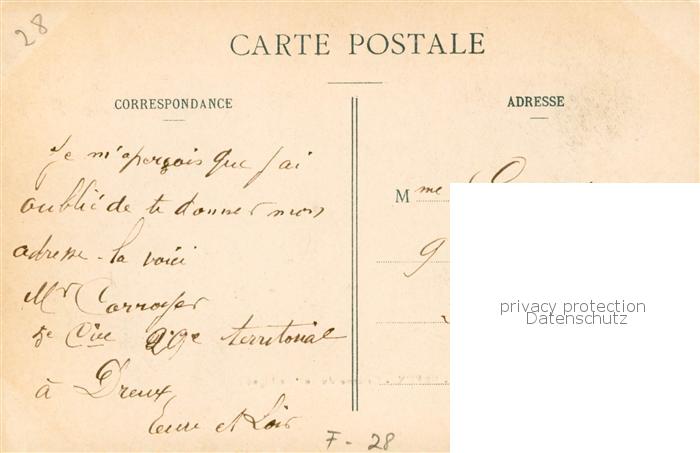 28
CARTE POSTALE
CORRESPONDANCE
ADRESSE
Je m'aperçois que j'ai
oublié de te donner mon
adresse - la voici
Mr
5e Cie 29e territorial
à Dreux
Eure et Loir
Mme
9
privacy protection
Datenschutz
F - 28